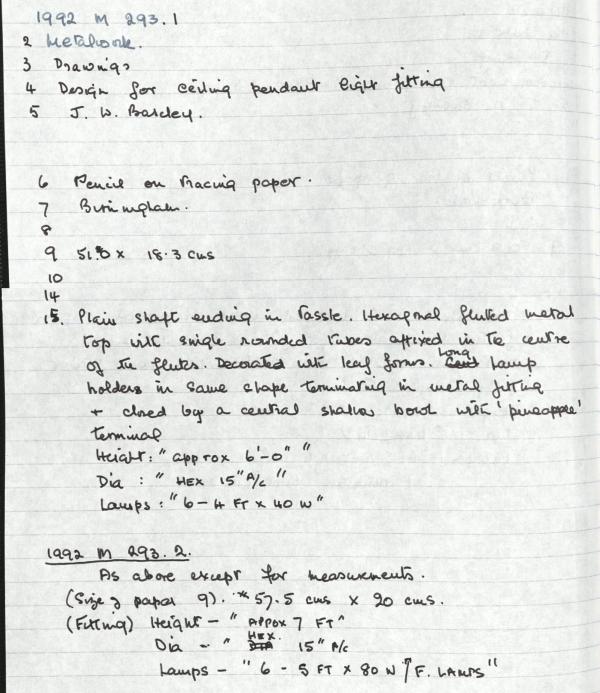 1992 M 293.1
2 Metalwork.
3 Drawings
4 Design for ceiling pendant light fitting
5 J. W. Barcley.
6 Pencil on tracing paper.
7 Birmingham.
8
9 51.8 x 18.3 cms
10
14
15. Plain shaft ending in tassle. Hexagonal fluted metal
top with single rounded tubes affixed in the centre
of the flutes. Decorated with leaf forms. Long lamp
holders in same shape terminating in metal fitting
+ closed by a central shallow bowl with 'pineapple'
terminal
Height: "approx 6'-0" "
Dia : " HEX 15" A/C "
Lamps : "6 - 4 FT x 40 W"
1992 M 293.2.
As above except for measurements.
(Size of paper 9). * 57.5 cms x 20 cms.
(Fitting) Height - " APPOX 7 FT"
Dia - " HEX. 15" A/C
Lamps - "6 - 5 FT x 80 W F. LAMPS"